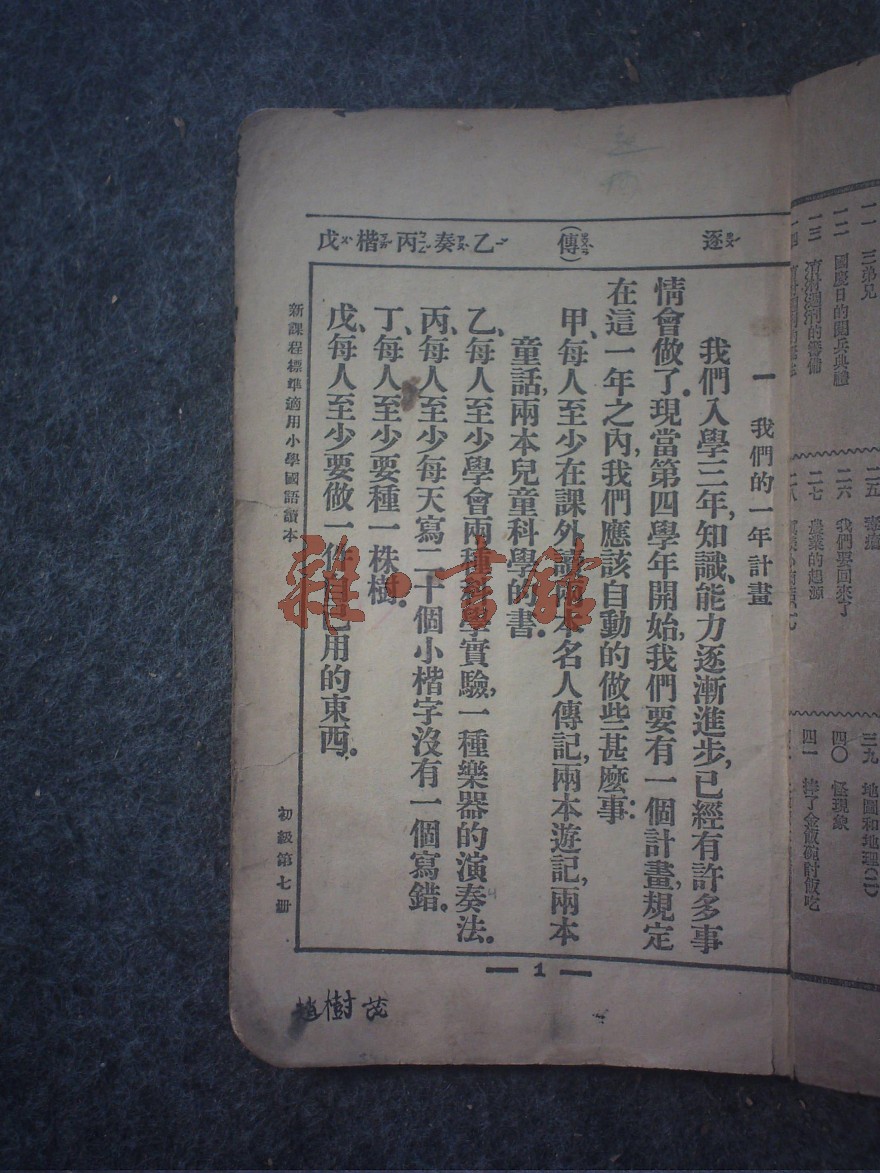 逐 (傳) 乙 奏 丙 楷 戊
一 我們的一年計畫
我們入學三年，知識、能力逐漸進步，已經有許多事
情會做了。現當第四學年開始，我們要有一個計畫，規定
在這一年之內，我們應該自動的做些甚麼事：
甲、每人至少在課外讀兩本名人傳記，兩本遊記，兩本
童話，兩本兒童科學的書。
乙、每人至少學會兩種科學實驗，一種樂器的演奏法。
丙、每人至少每天寫二十個小楷字沒有一個寫錯。
丁、每人至少要種一株樹。
戊、每人至少要做一件自己用的東西。
新課程標準適用小學國語讀本
初級第七冊
1
趙樹茂
雜·書館
一一 三弟兄
一二 國慶日的閱兵典禮
一三
一四
二五
二六 我們要回來了
二七 農業的起源
二八
三九 地圖和地理(二)
四〇 怪現象
四一 捧了金飯碗討飯吃